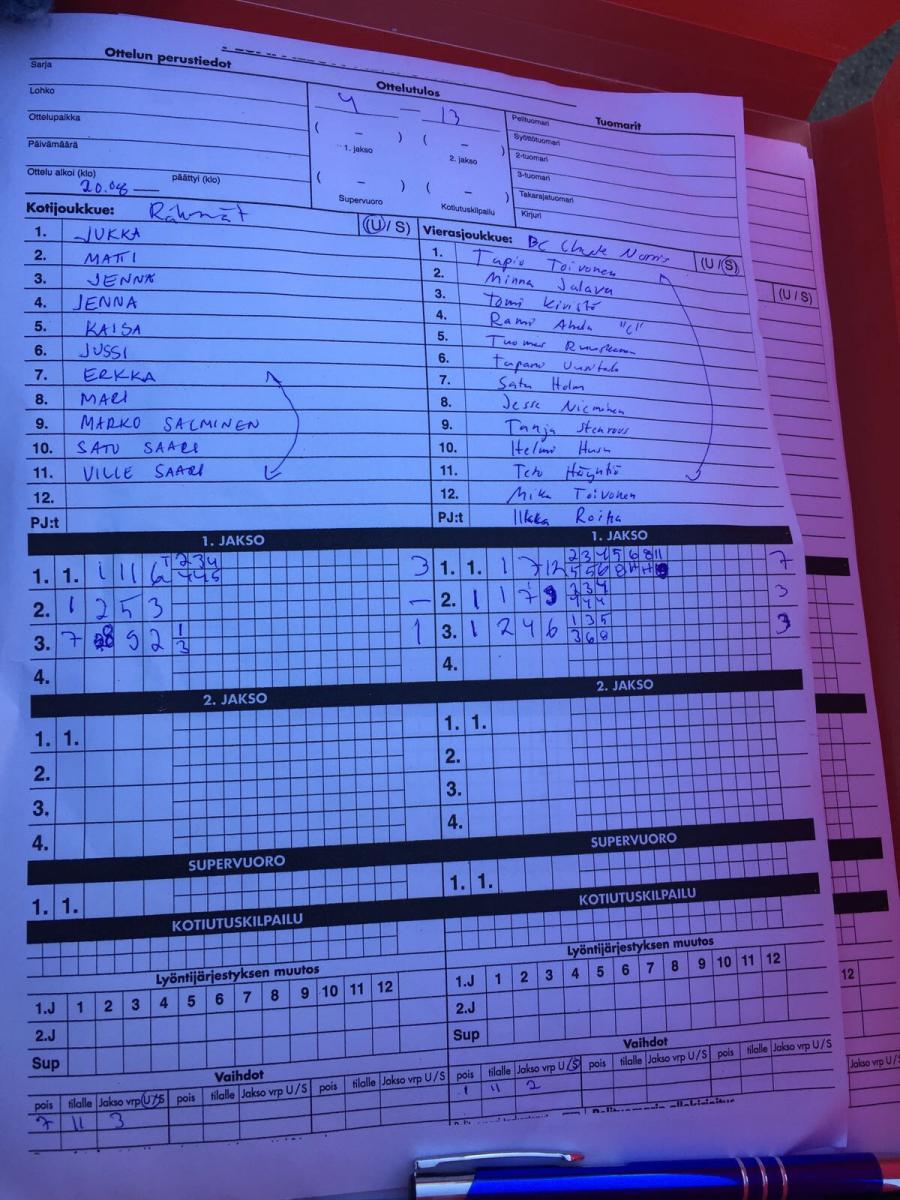 Ottelun perustiedot
Ottelutulos
Tuomarit
Sarja
Lohko
Ottelupaikka
Päivämäärä
Ottelu alkoi (klo) 20.08 päättyi (klo)
4 — 13
( – ) ( – )
1. jakso 2. jakso
( – ) ( – )
Supervuoro Kotiutuskilpailu
Pelituomari
Syöttötuomari
2-tuomari
3-tuomari
Takarajatuomari
Kirjuri
Kotijoukkue: Rähmät (U/S)
1. JUKKA
2. MATTI
3. JENNA
4. JENNA
5. KAISA
6. JUSSI
7. ERKKA
8. MARI
9. MARKO SALMINEN
10. SATU SAARI
11. VILLE SAARI
12.
PJ:t
Vierasjoukkue: BC Chuck Norris (U/S)
1. Tapio Toivonen
2. Minna Jalava
3. Tomi Kivistö
4. Rami "C"
5. Tuomas
6. Tapani
7. Satu Holm
8. Jesse Nieminen
9. Tanja Stenroos
10. Helmi
11. Tero
12. Mika Toivonen
PJ:t Ilkka Roiha
(U/S)
1. JAKSO
1. 1. 1 11 6 3
2. 1 2 5 3 —
3. 7 8 9 2 1 3 1
4.
1. JAKSO
1. 1. 1 7 12 7
2. 1 1 7 9 3
3. 1 2 4 6 1 3 5 3 6 8 3
4.
2. JAKSO
1. 1.
2.
3.
4.
2. JAKSO
1. 1.
2.
3.
4.
SUPERVUORO
1. 1.
SUPERVUORO
1. 1.
KOTIUTUSKILPAILU
KOTIUTUSKILPAILU
Lyöntijärjestyksen muutos
1.J 1 2 3 4 5 6 7 8 9 10 11 12
2.J
Sup
Lyöntijärjestyksen muutos
1.J 1 2 3 4 5 6 7 8 9 10 11 12
2.J
Sup
12
Vaihdot
pois tilalle Jakso vrp U/S pois tilalle Jakso vrp U/S pois tilalle Jakso vrp U/S
7 11 3
Vaihdot
pois tilalle Jakso vrp U/S pois tilalle Jakso vrp U/S pois tilalle Jakso vrp U/S
1 11 2
Jakso vrp U/S